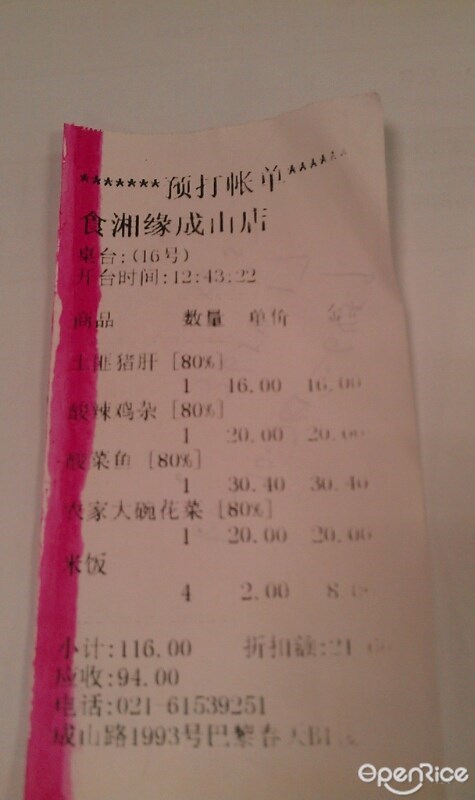 *******预打帐单******
食湘缘成山店
桌台:(16号)
开台时间:12:43:22
商品 数量 单价
土匪猪肝 [80%]
1 16.00 16.00
酸辣鸡杂 [80%]
1 20.00 20.00
酸菜鱼 [80%]
1 30.40 30.40
农家大碗花菜 [80%]
1 20.00 20.00
米饭
4 2.00
小计:116.00 折扣额:21
应收:94.00
电话:021-61539251
成山路1993号巴黎春天B1
OpenRice